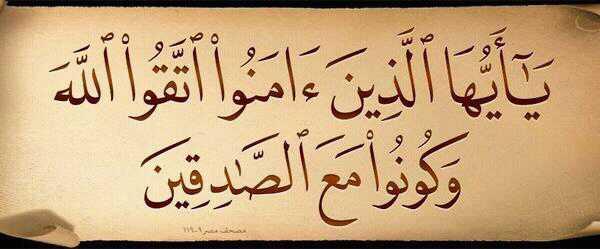 يَـٰٓأَيُّهَا ٱلَّذِينَ ءَامَنُوا۟ ٱتَّقُوا۟ ٱللَّهَ
وَكُونُوا۟ مَعَ ٱلصَّـٰدِقِينَ
مصحف مصر ٩-١١٩